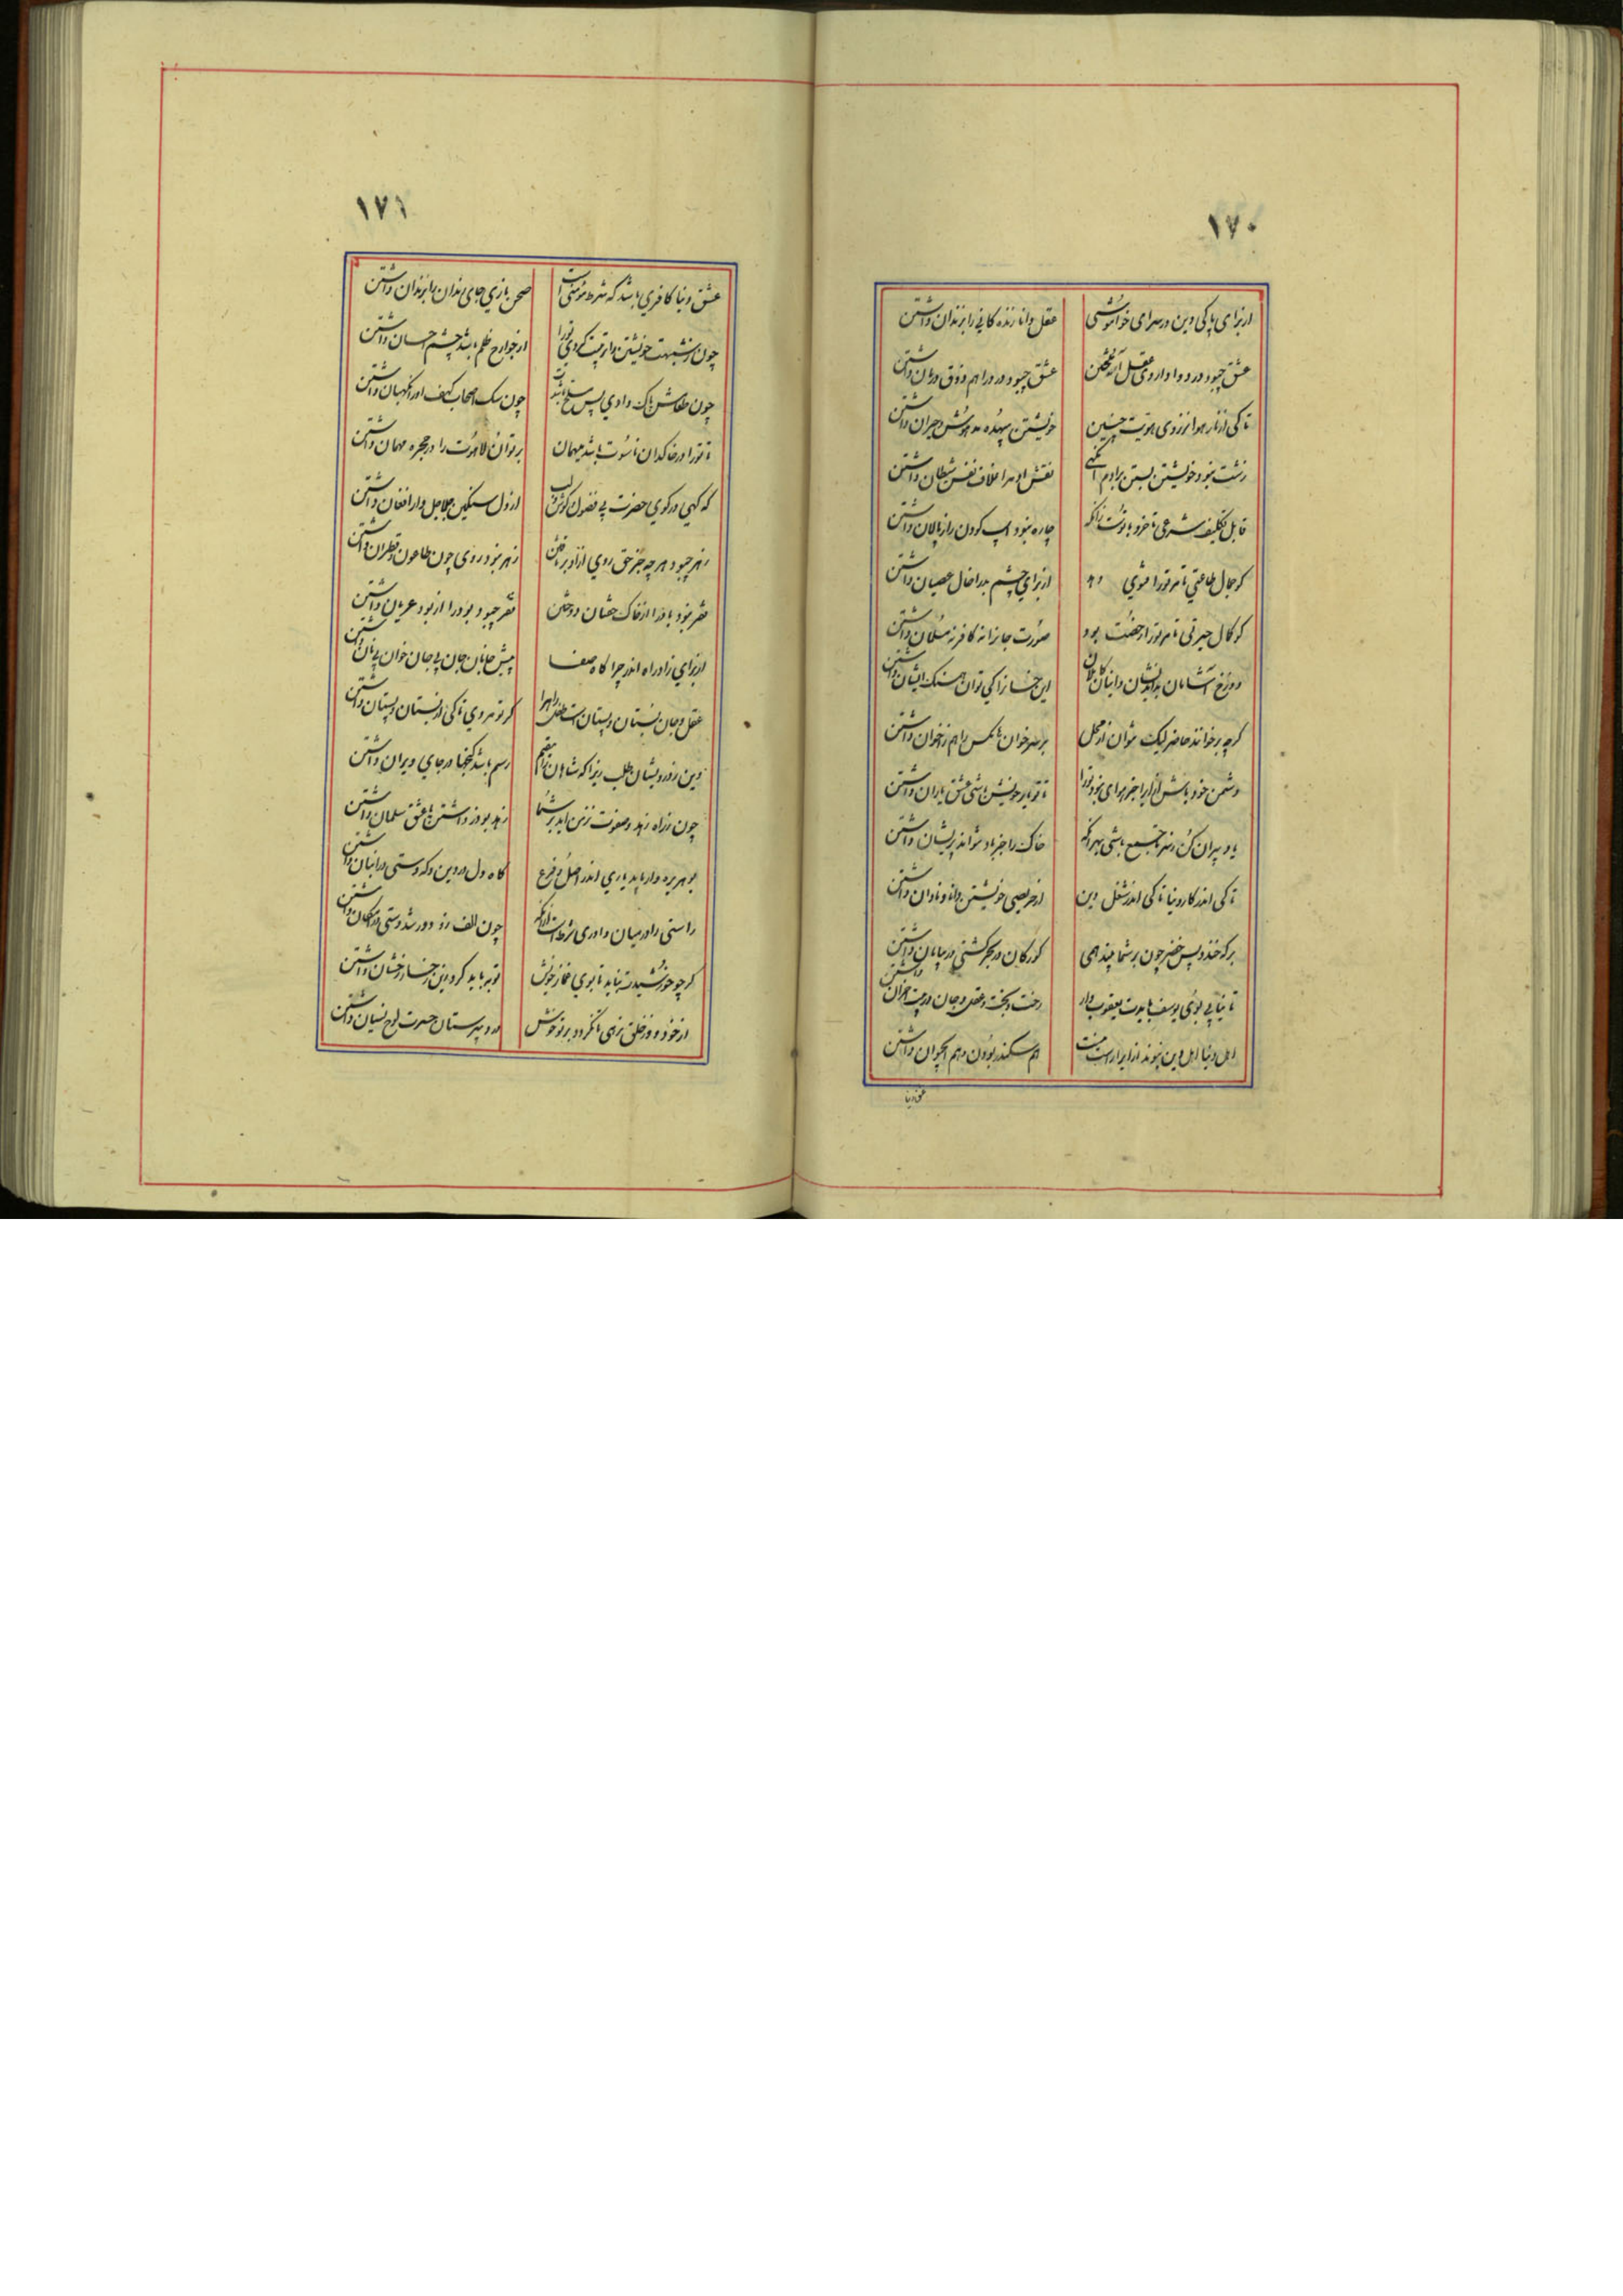 ١٧٠
از برای پاکی دین در سرای خوامُوشی عقل دانا زنده کانی را بزندان داشتن
عشق چبود درد و دوا داروی عقل عشق چبود درد را هم ذوق درمان داشتن
تا کی از نار هوا بر روی هویت چنین خویشتن بیهُده مدهوش و حیران داشتن
زشت بنود خویشتن بستن بر ادم نقش او مر اخلاف نفس شیطان داشتن
قابل تکلیف شرعی تا خرد با تُوست زانکه چاره بنود اسپ کودن را ز پالان داشتن
کر جمال طاعتی تا مر تورا از برای چشم بد را خال عصیان داشتن
کو کمال حیرتی تا مر تورا رخصت بود صوُرت جانرا نه کافر نه مسُلمان داشتن
دوزخ اشامان این خسانرا کی توان همسنک ایشان داشتن
کرچه بر خوانند حاضر لیک نتوان از محل بر سر خوان هم ز خوان داشتن
دشمن خود باش زیرا جز هوای بنود تورا تا تو یار خویش باشی عشق یاران داشتن
باد پیران کُن مجتمع باشی بهر انکه خاک را جز باد نتواند پریشان داشتن
تا کی اندر کار دنیا تا کی اندر شغل دین از حریصی خویشتن دانا و نادان داشتن
برکه خندد پس خضر چون بر شما چند همی کور کان در بحر کشتی در بیابان داشتن
تا نیابی بوُی یوسف بایدت یعقوب وار رخت و بخت و عقل و جان در بیت احزان داشتن
اهل دنیا اهل دین بنوند ازیرا راست نیست هم سکندر بوُدن و هم ابحیوان داشتن
عشق دنیا
١٧١
عشق دنیا کافری باشد که شرط مؤمنی است صحن بازی جای رندان را بزندان داشتن
چون ز شبهت خویشتن را تربیت کردی تورا از جوارح ظلم باشد چشم احسان داشتن
چون طعامش پاک دادی پس مسلّم باشدت چون سک اصحاب کهف او را نکهبان داشتن
تا تورا در خاکدان ناسُوت باشد میهمان بر توان لاهوُت را در حجره مهمان داشتن
که کهی در کوی حضرت بی فضول کوش و لب از دل سنکین جلاجل وار افغان داشتن
زهر چبود هر چه جز حق روی از او بر تافتن زهر بنود روی چون طاعون و قطران داشتن
فقر بنود باد را از خاک خفتان دوختن فقر چبود بود را از بود عریان داشتن
از برای زاد راه اندر چرا کاه صفا پیش جانان جان بی جان خوان بی نان داشتن
عقل و جان بُستان و پستان است طفل راه را کر تو مردی تا کی از بستان و پستان داشتن
دین ز درویشان طلب زیرا که شاهان را مقیم رسم باشد کنجها در جای ویران داشتن
چون ز راه زهد و صفوت زتن اید بر شُما زهد بوذر داشتن با عشق سلمان داشتن
بوهریره وار باید یاری اندر اصلُ و فرع کاه دل در دین و که دستی در انبان داشتن
راستی را در میان داوری شرط است از انکه چون الف زو دور شد دستی در امکان داشتن
کر چو خورشیدت نباید تا بوی غماز خویش توبه باید کرد ازین رخسار رخشان داشتن
از خود و از خلق نرهی تا نکردد بر تو خوش در دبیرستان حیرت لوح نسیان داشتن